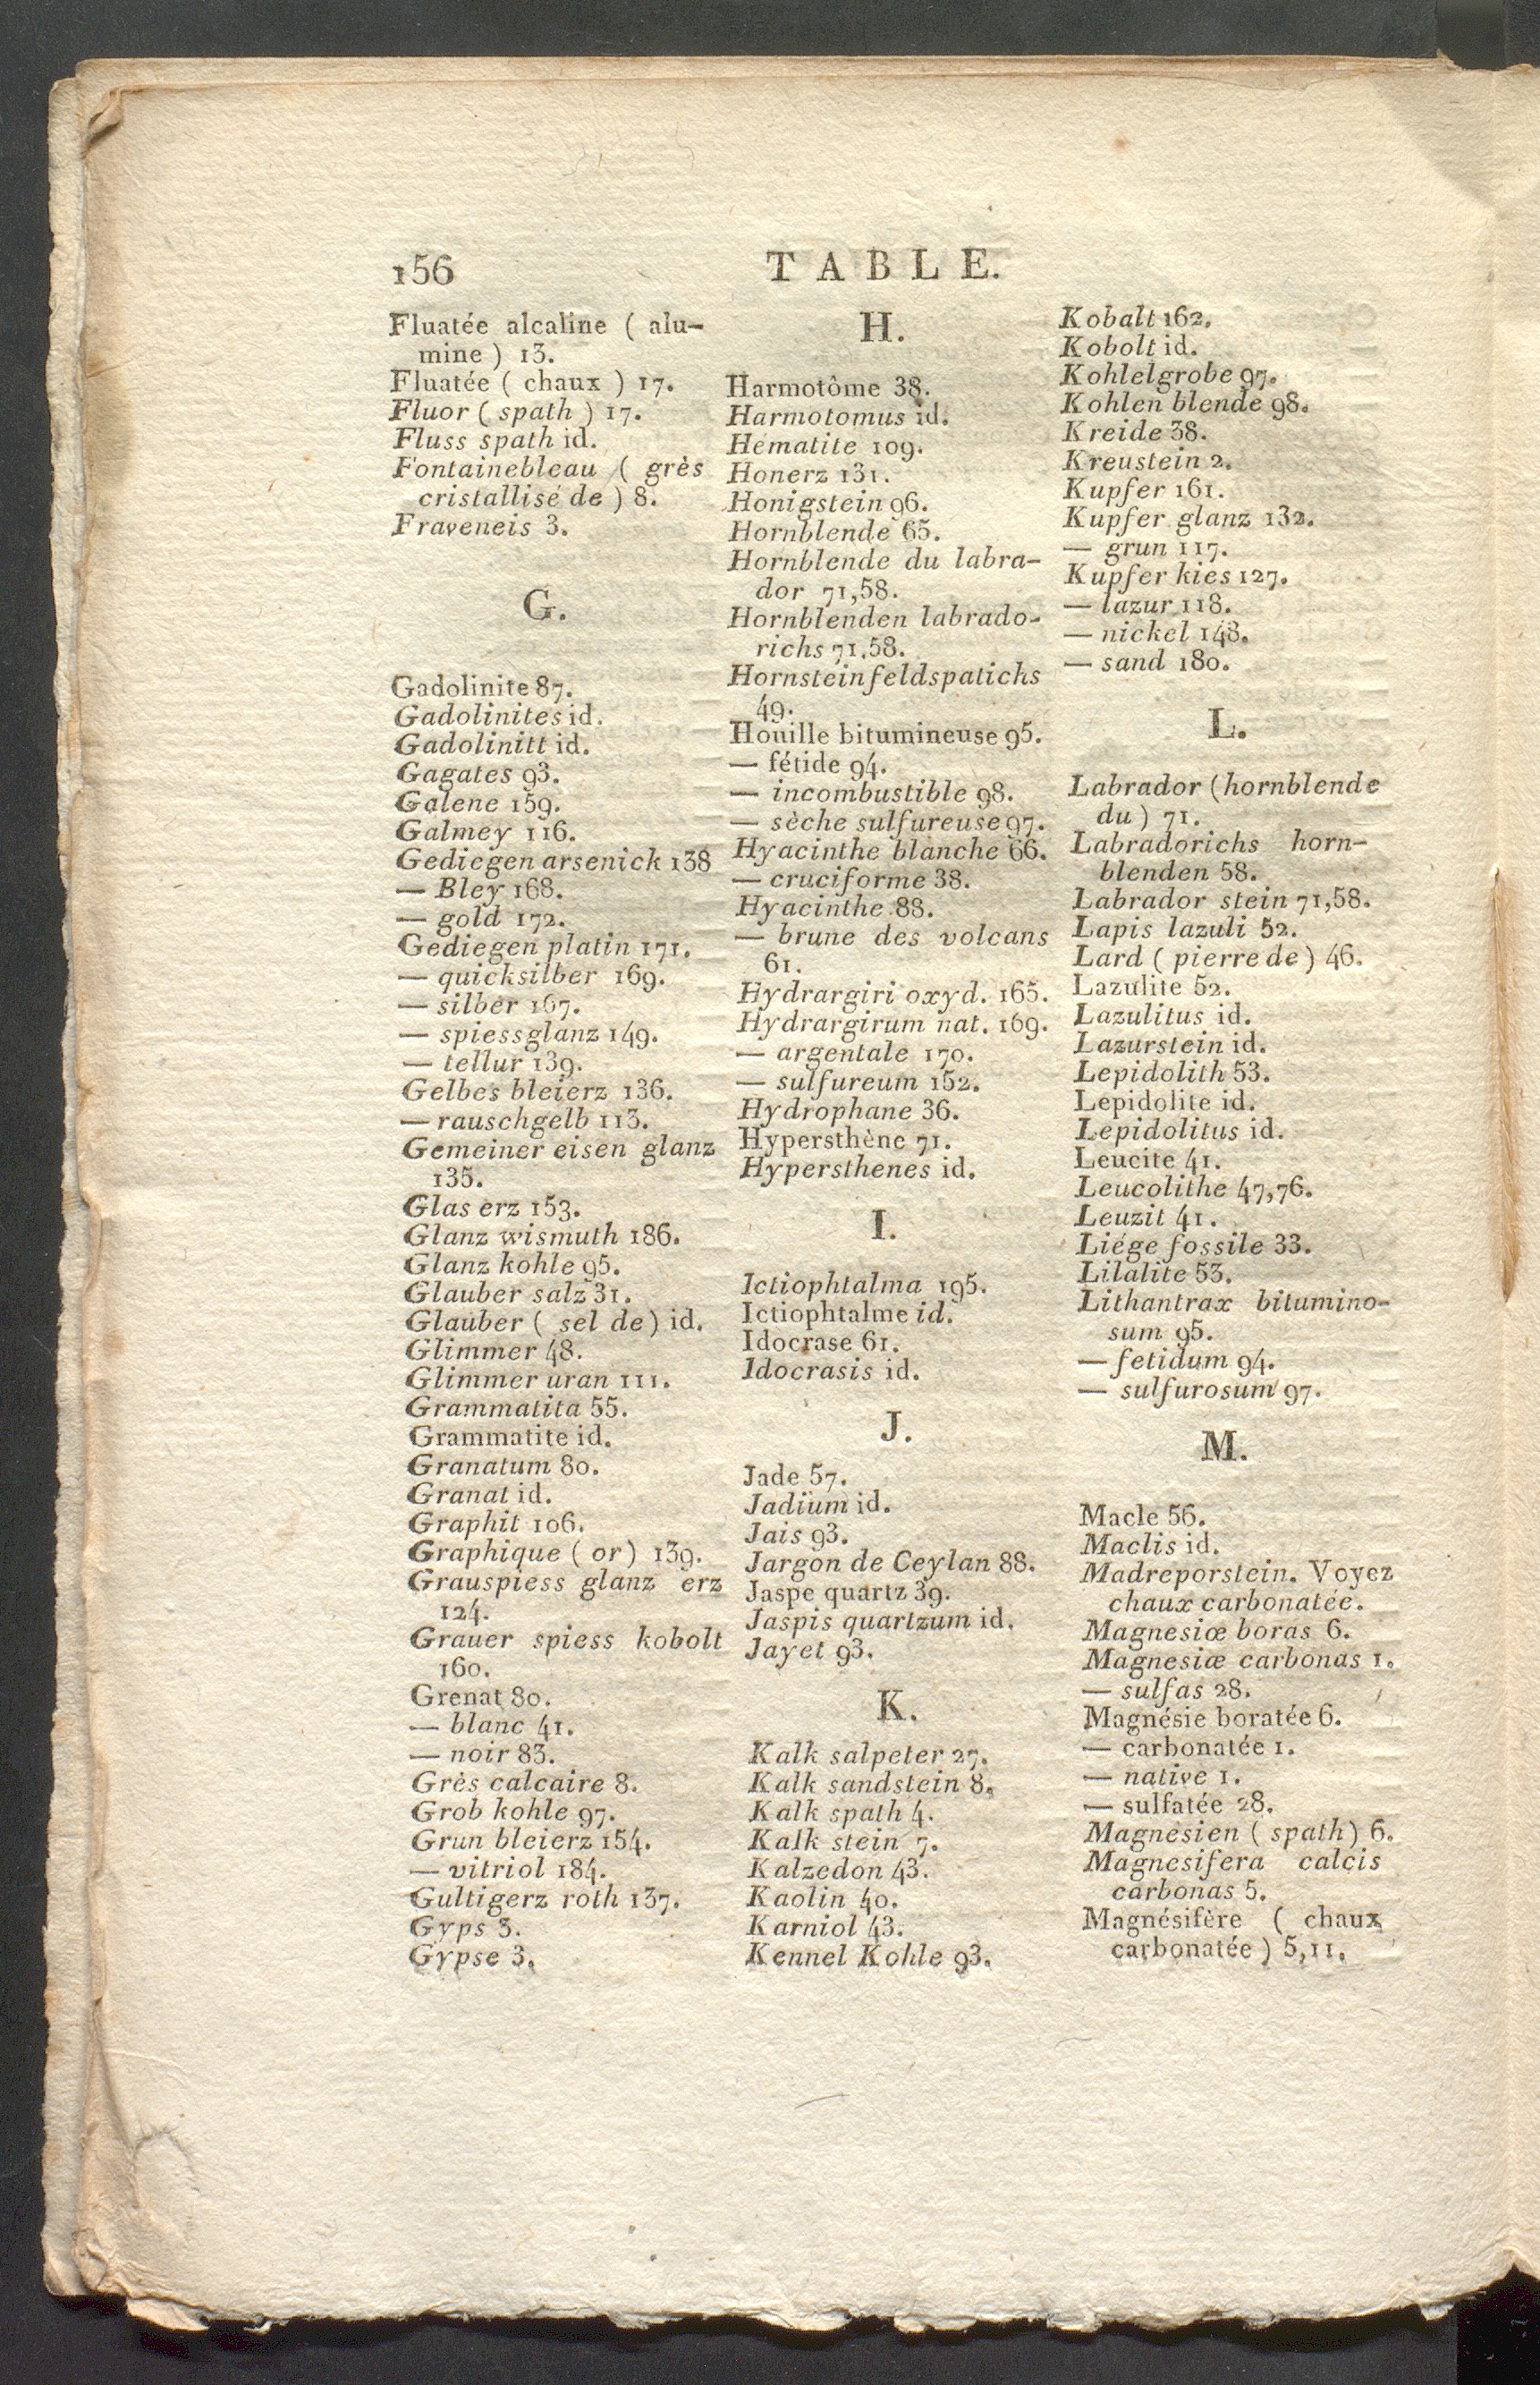 156
TABLE.
Fluatée alcaline ( alu-
mine ) 13.
Fluatée ( chaux ) 17.
Fluor ( spath ) 17.
Fluss spath id.
Fontainebleau ( grès
cristallisé de ) 8.
Fraveneis 3.
G.
Gadolinite 87.
Gadolinites id.
Gadolinitt id.
Gagates 93.
Galene 159.
Galmey 116.
Gediegen arsenick 138
— Bley 168.
— gold 172.
Gediegen platin 171.
— quicksilber 169.
— silber 167.
— spiessglanz 149.
— tellur 139.
Gelbes bleierz 136.
— rauschgelb 113.
Gemeiner eisen glanz
135.
Glas erz 153.
Glanz wismuth 186.
Glanz kohle 95.
Glauber salz 31.
Glauber ( sel de ) id.
Glimmer 48.
Glimmer uran 111.
Grammatita 55.
Grammatite id.
Granatum 80.
Granat id.
Graphit 106.
Graphique ( or ) 139.
Grauspiess glanz erz
124.
Grauer spiess kobolt
160.
Grenat 80.
— blanc 41.
— noir 83.
Grès calcaire 8.
Grob kohle 97.
Grun bleierz 154.
— vitriol 184.
Gultigerz roth 137.
Gyps 3.
Gypse 3.
H.
Harmotôme 38.
Harmotomus id.
Hématite 109.
Honerz 131.
Honigstein 96.
Hornblende 65.
Hornblende du labra-
dor 71,58.
Hornblenden labrado-
richs 71,58.
Hornsteinfeldspatichs
49.
Houille bitumineuse 95.
— fétide 94.
— incombustible 98.
— sèche sulfureuse 97.
Hyacinthe blanche 66.
— cruciforme 38.
Hyacinthe 88.
— brune des volcans
61.
Hydrargiri oxyd. 165.
Hydrargirum nat. 169.
— argentale 170.
— sulfureum 152.
Hydrophane 36.
Hypersthène 71.
Hypersthenes id.
I.
Ictiophtalma 195.
Ictiophtalme id.
Idocrase 61.
Idocrasis id.
J.
Jade 57.
Jadium id.
Jais 93.
Jargon de Ceylan 88.
Jaspe quartz 39.
Jaspis quartzum id.
Jayet 93.
K.
Kalk salpeter 27.
Kalk sandstein 8.
Kalk spath 4.
Kalk stein 7.
Kalzedon 43.
Kaolin 40.
Karniol 43.
Kennel Kohle 93.
Kobalt 162.
Kobolt id.
Kohlelgrobe 97.
Kohlen blende 98.
Kreide 38.
Kreustein 2.
Kupfer 161.
Kupfer glanz 132.
— grun 117.
Kupfer kies 127.
— lazur 118.
— nickel 148.
— sand 180.
L.
Labrador (hornblende
du ) 71.
Labradorichs horn-
blenden 58.
Labrador stein 71,58.
Lapis lazuli 52.
Lard ( pierre de ) 46.
Lazulite 52.
Lazulitus id.
Lazurstein id.
Lepidolith 53.
Lepidolite id.
Lepidolitus id.
Leucite 41.
Leucolithe 47,76.
Leuzit 41.
Liége fossile 33.
Lilalite 53.
Lithantrax bitumino-
sum 95.
— fetidum 94.
— sulfurosum 97.
M.
Macle 56.
Maclis id.
Madreporstein. Voyez
chaux carbonatée.
Magnesiæ boras 6.
Magnesiæ carbonas 1.
— sulfas 28.
Magnésie boratée 6.
— carbonatée 1.
— native 1.
— sulfatée 28.
Magnésien ( spath ) 6.
Magnesifera calcis
carbonas 5.
Magnésifère ( chaux
carbonatée ) 5,11.